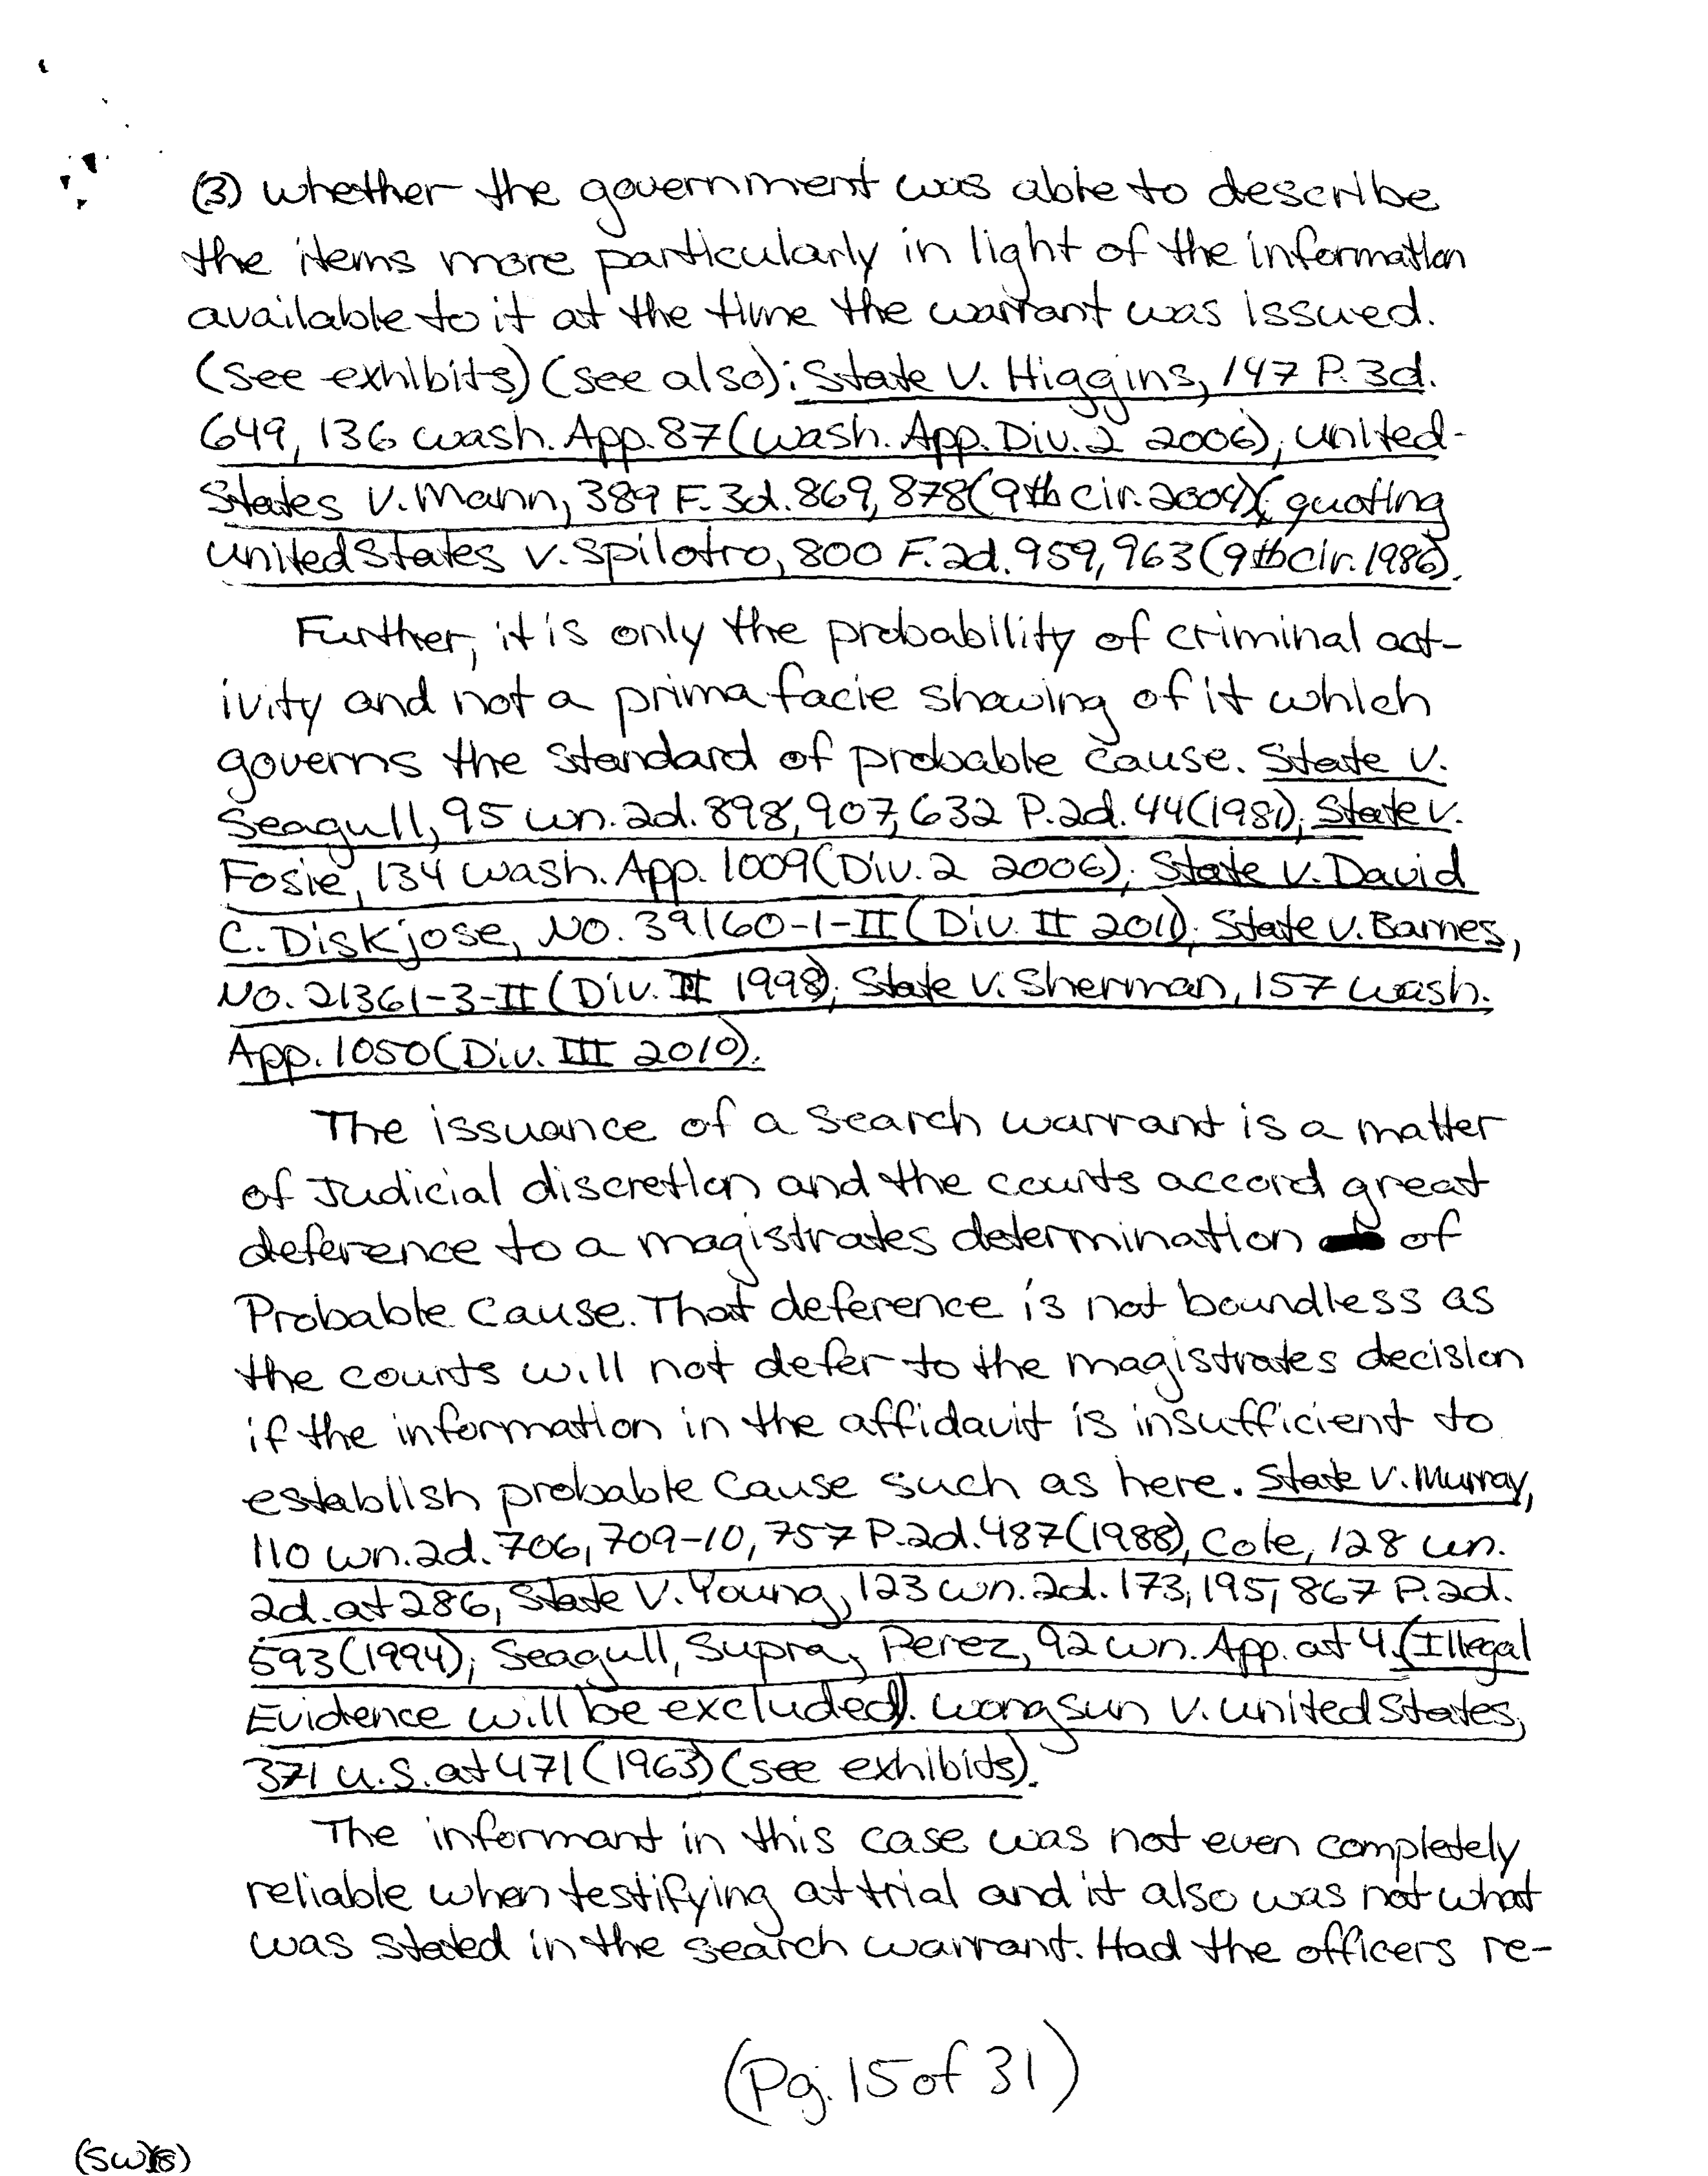 (3) whether the government was able to describe
the items more particularly in light of the information
available to it at the time the warrant was issued.
(see exhibits) (see also): State v. Higgins, 147 P. 3d.
649, 136 wash. App. 87 (wash. App. Div. 2 2006), united-
States v. Mann, 389 F. 3d. 869, 878 (9th cir. 2004)( quoting
united States v. Spilotro, 800 F. 2d. 959, 963 (9th cir. 1986).
Further, it is only the probability of criminal act-
ivity and not a prima facie showing of it which
governs the standard of probable cause. State v.
Seagull, 95 wn. 2d. 898, 907, 632 P. 2d. 44 (1981), State v.
Fosie, 134 wash. App. 1009 (Div. 2 2006), State v. David
C. Diskjose, No. 39160-1-II (Div. II 2011), State v. Barnes,
No. 21361-3-II (Div. II 1998), State v. Sherman, 157 wash.
App. 1050 (Div. III 2010).
The issuance of a search warrant is a matter
of Judicial discretion and the courts accord great
deference to a magistrates determination of
Probable Cause. That deference is not boundless as
the courts will not defer to the magistrates decision
if the information in the affidavit is insufficient to
establish probable cause such as here. State v. Murray,
110 wn. 2d. 706, 709-10, 757 P. 2d. 487 (1988), Cole, 128 wn.
2d. at 286, State v. Young, 123 wn. 2d. 173, 195, 867 P. 2d.
593 (1994), Seagull, Supra, Perez, 92 wn. App. at 4. (Illegal
Evidence will be excluded). wong sun v. united States,
371 u.s. at 471 (1963) (see exhibits).
The informant in this case was not even completely
reliable when testifying at trial and it also was not what
was stated in the search warrant. Had the officers re-
(Pg. 15 of 31)